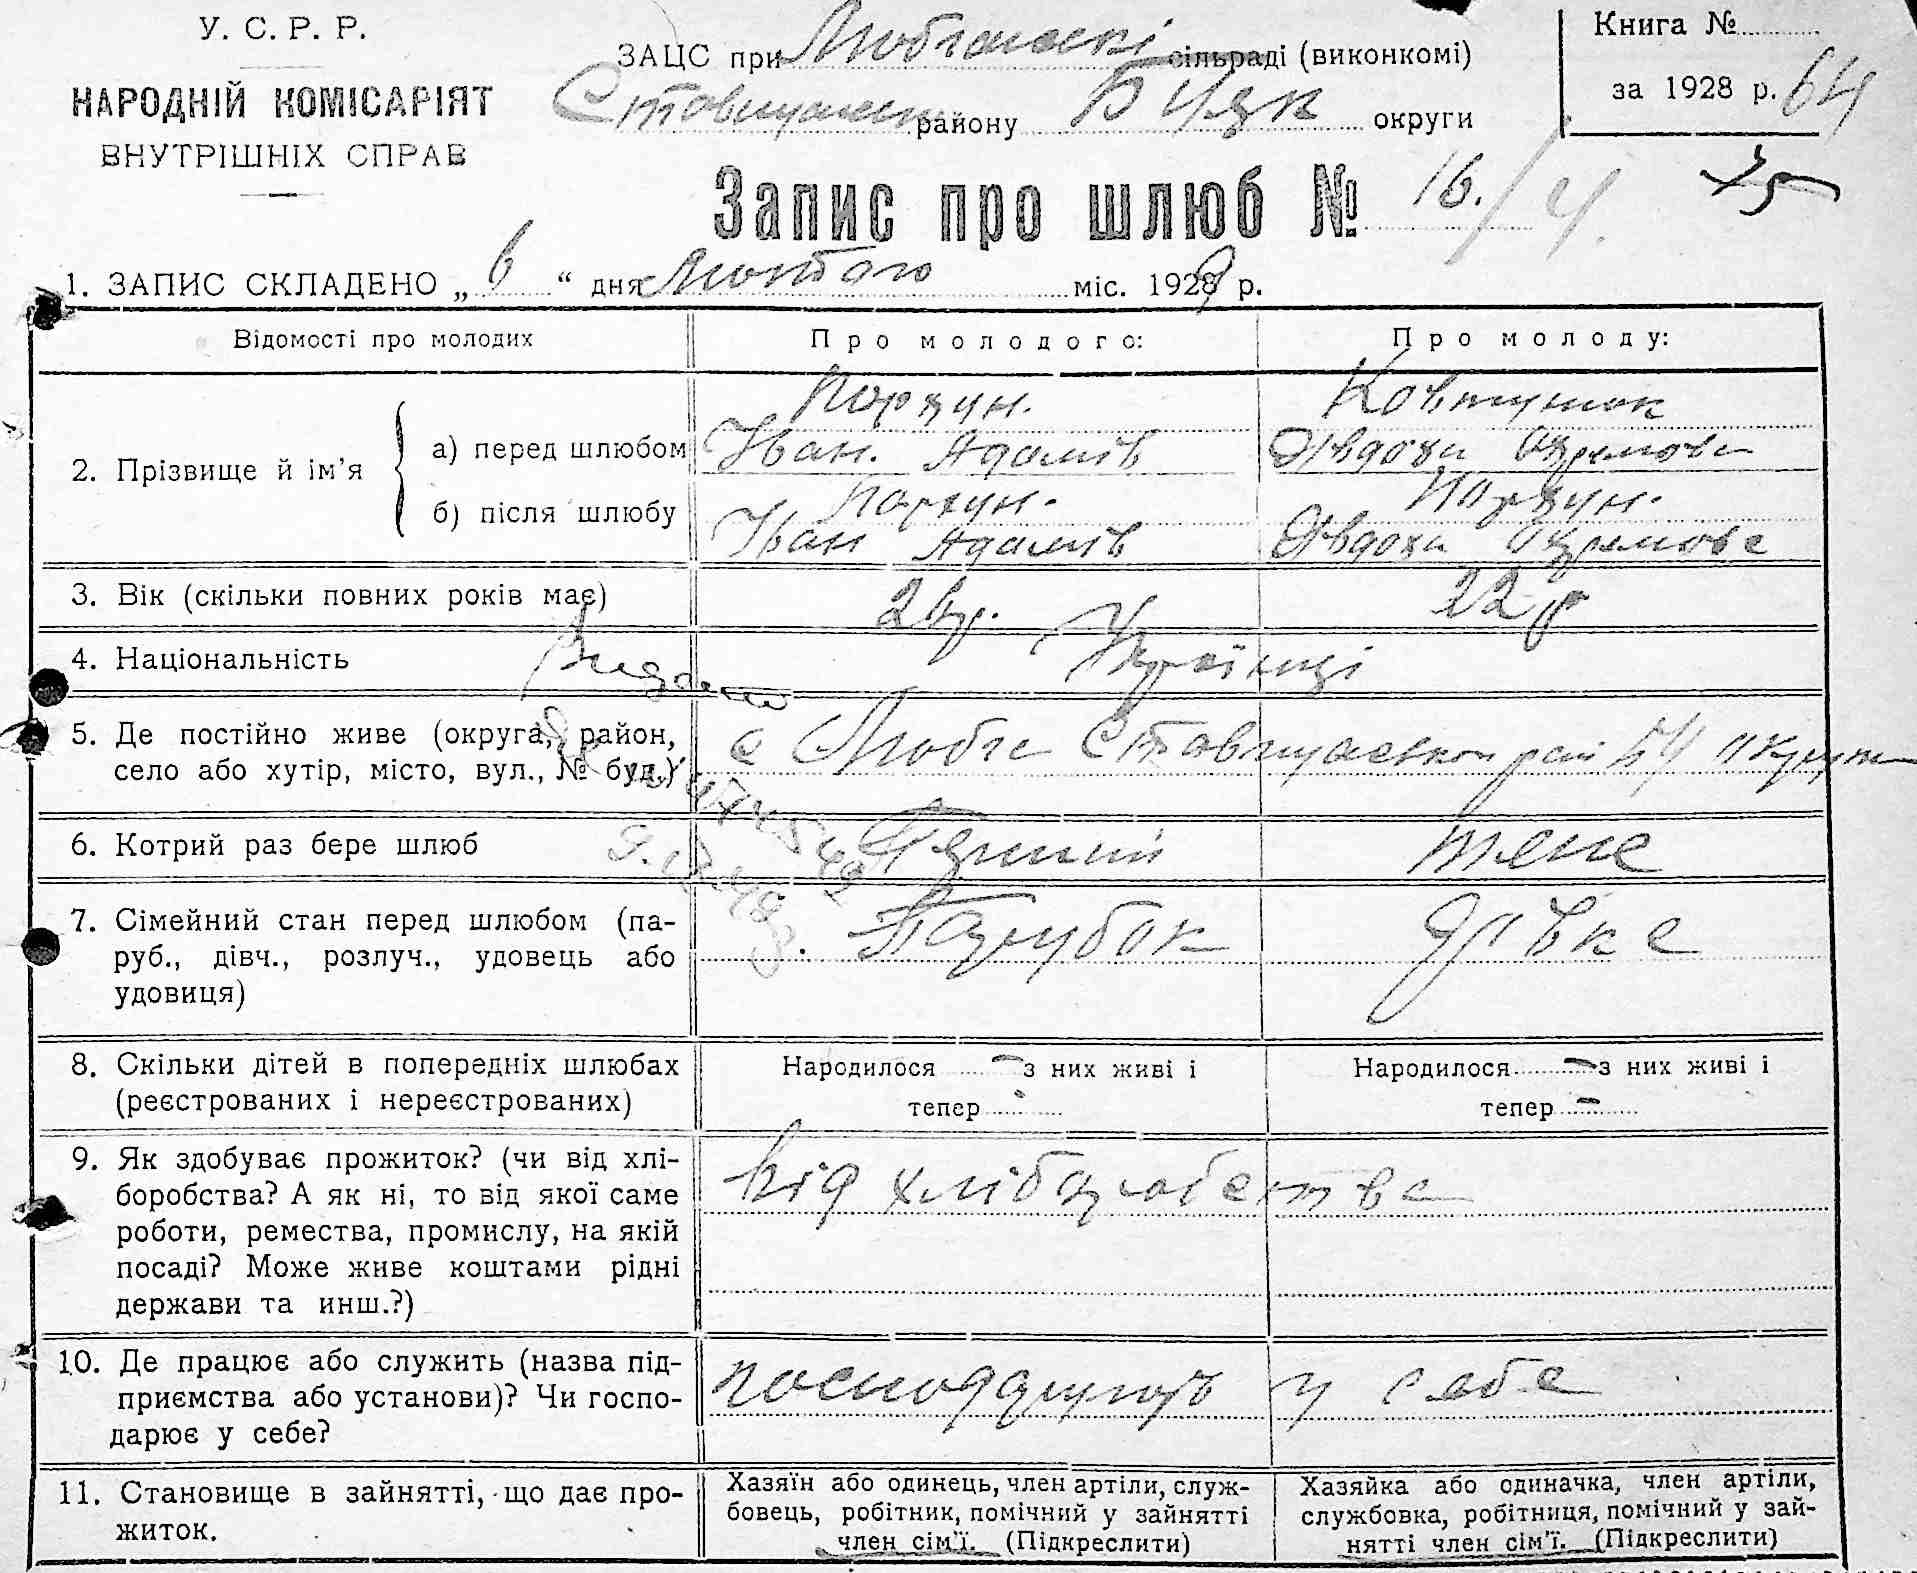 У. С. Р. Р.
НАРОДНІЙ КОМІСАРІЯТ
ВНУТРІШНІХ СПРАВ
ЗАЦС при сільраді (виконкомі)
району Б Црк округи
Книга №
за 1928 р. 64
Запис про шлюб № 16. / 4.
1. ЗАПИС СКЛАДЕНО „ 6 “ дня Лютого міс. 1929 р.
Відомості про молодих
Про молодого:
Про молоду:
2. Прізвище й ім’я
а) перед шлюбом
Порхун.
Іван. Адамів
Ковтунюк
Явдоха
б) після шлюбу
Порхун.
Іван Адамів
Порхун.
Явдоха
3. Вік (скільки повних років має)
22 р
4. Національність
Українці
5. Де постійно живе (округа, район,
село або хутір, місто, вул., № буд.)
с Любча
6. Котрий раз бере шлюб
Перший
теже
7. Сімейний стан перед шлюбом (па-
руб., дівч., розлуч., удовець або
удовиця)
Парубок
Дівка
8. Скільки дітей в попередніх шлюбах
(реєстрованих і нереєстрованих)
Народилося – з них живі і
тепер -
Народилося – з них живі і
тепер –
9. Як здобуває прожиток? (чи від хлі-
боробства? А як ні, то від якої саме
роботи, ремества, промислу, на якій
посаді? Може живе коштами рідні
держави та инш.?)
Від хліборобства
10. Де працює або служить (назва під-
приємства або установи)? Чи госпо-
дарює у себе?
у себе
11. Становище в зайнятті, що дає про-
житок.
Хазяїн або одинець, член артіли, служ-
бовець, робітник, помічний у зайнятті
член сім’ї. (Підкреслити)
Хазяйка або одиначка, член артіли,
службовка, робітниця, помічний у зай-
нятті член сім’ї. (Підкреслити)